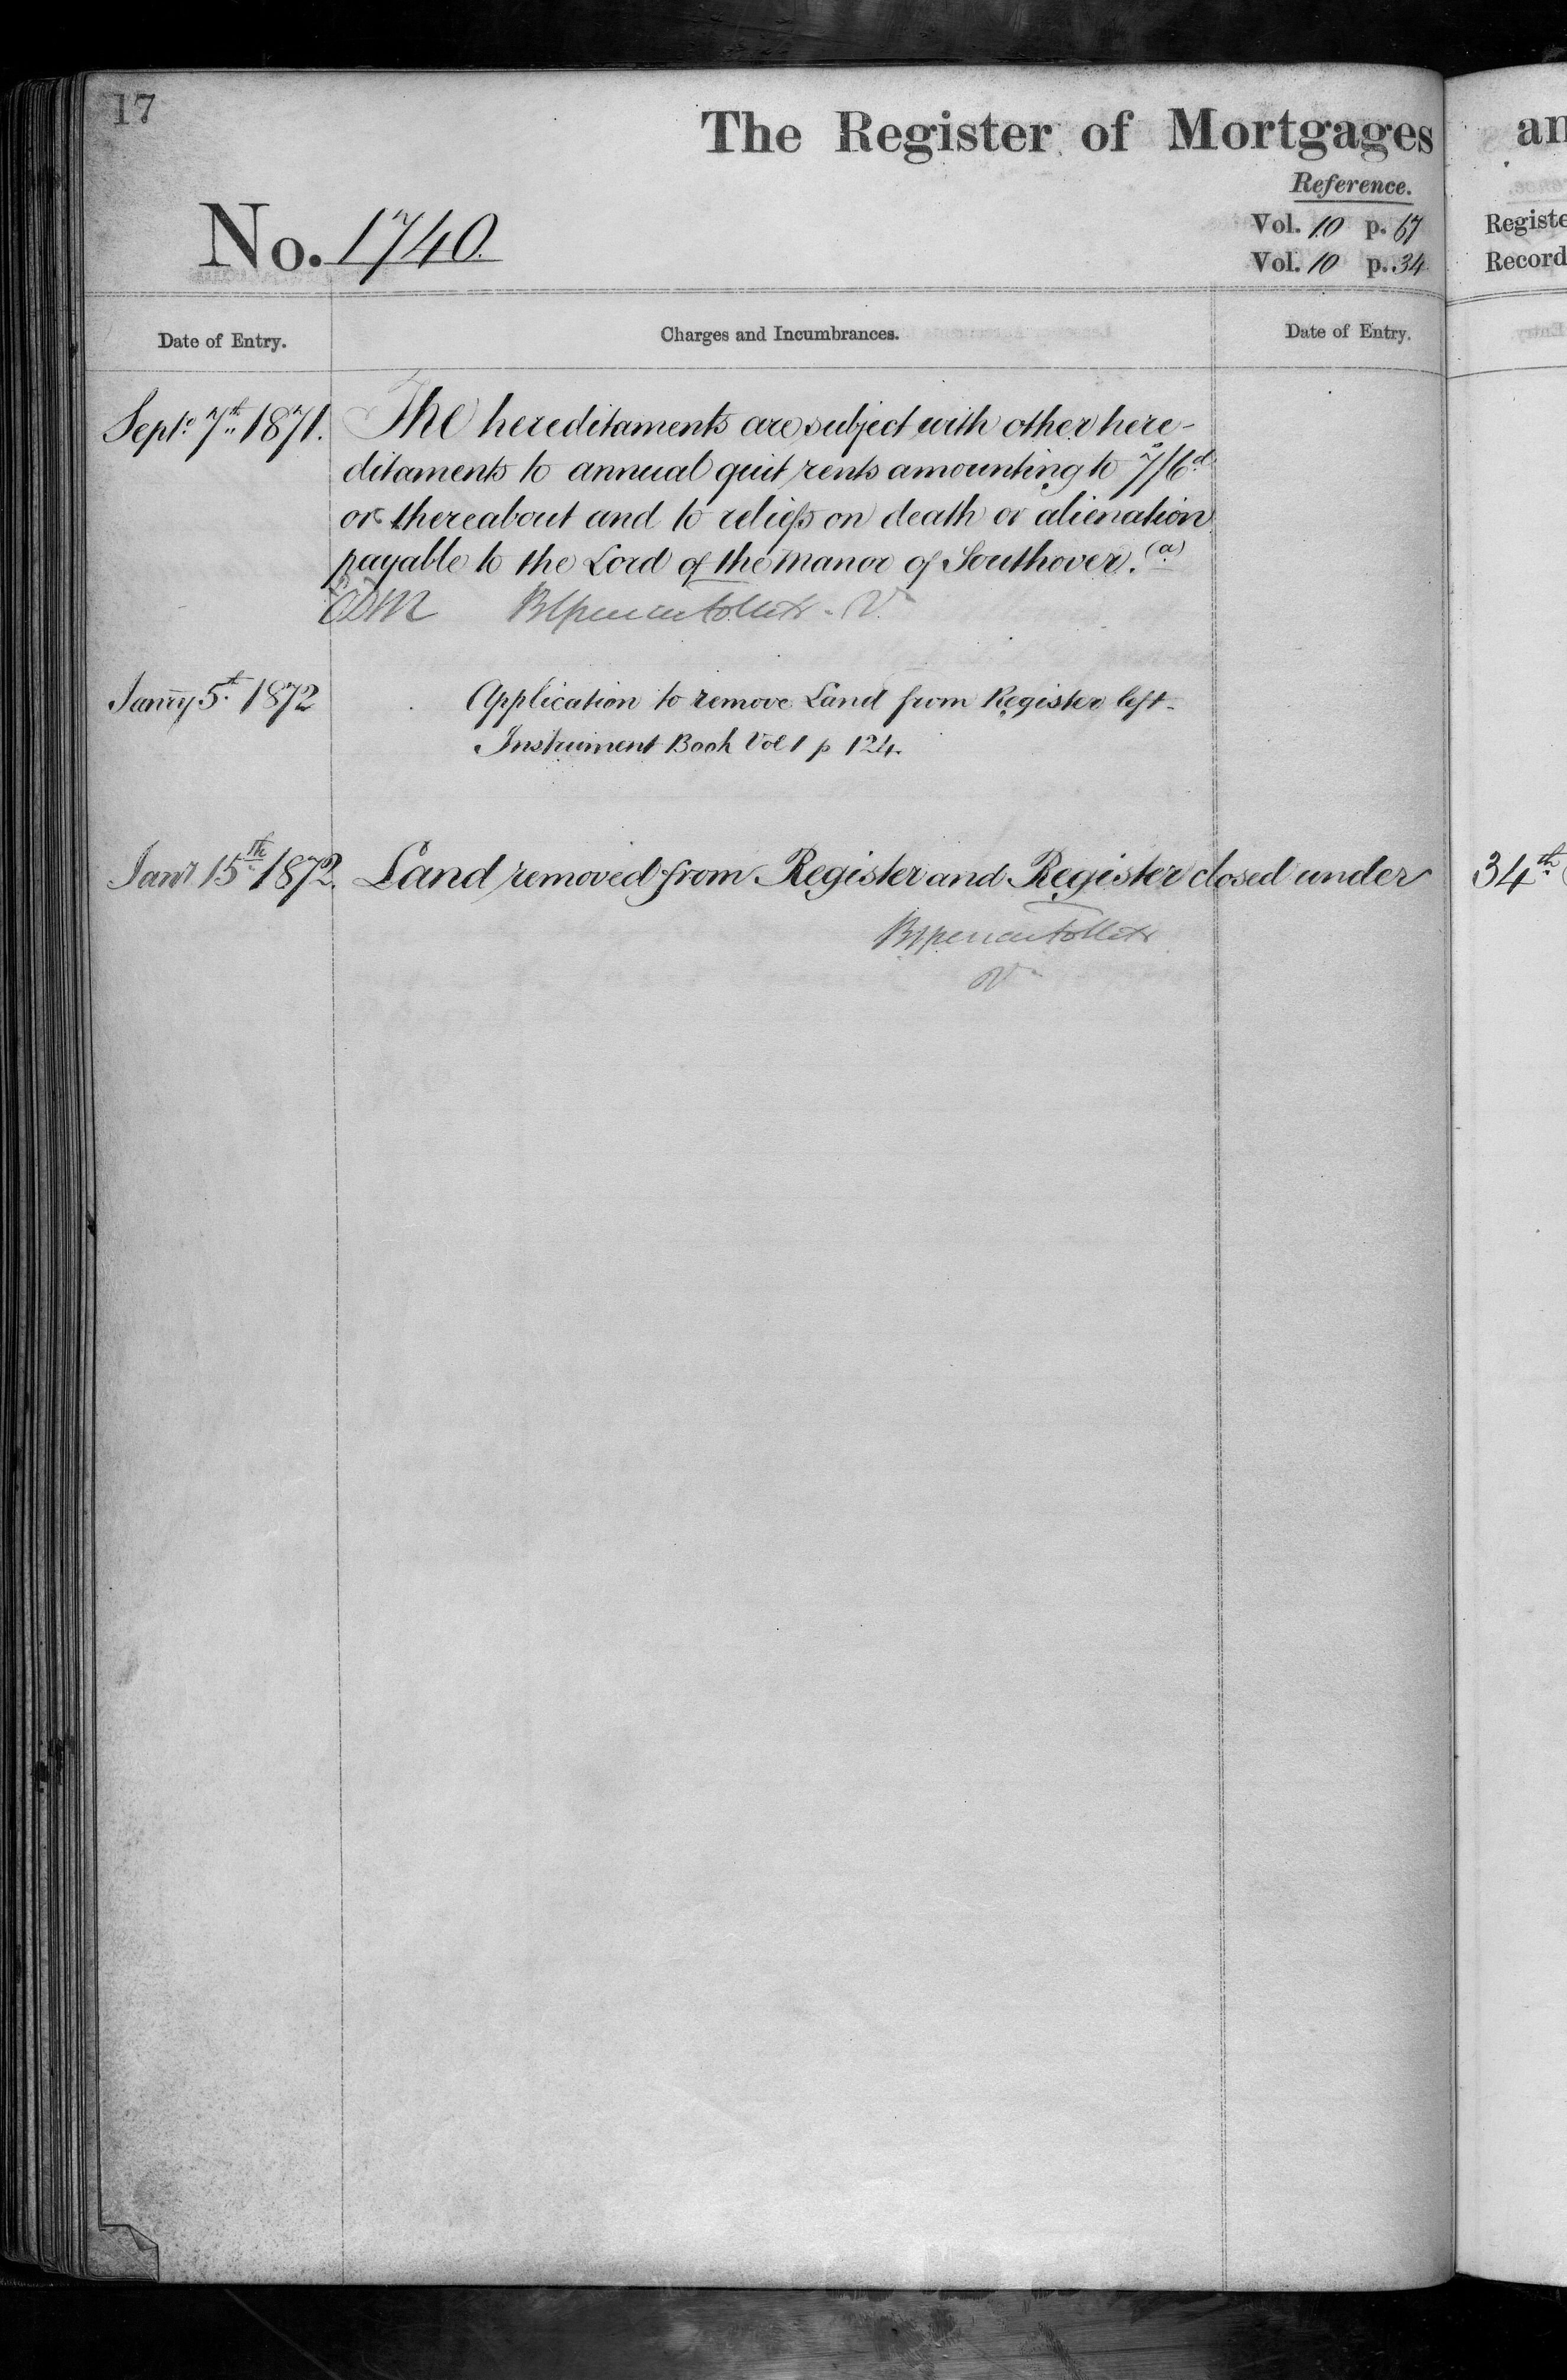 17
The Register of Mortgages
Reference.
No. 1740.
Vol. 10 p. 67
Vol. 10 p. 34
Date of Entry.
Charges and Incumbrances.
Date of Entry.
Septr. 7th. 1871.
The hereditaments are subject with other here-
ditaments to annual quit rents amounting to 7s/6d.
or thereabout and to reliefs on death or alienation
payable to the Lord of the manor of Southover. (a)
Janry 5t. 1872
Application to remove Land from Register left.
Instrument Book Vol 1 p 124.
Janr 15th. 1872.
Land removed from Register and Register closed under
an
Registe
Record
34th.